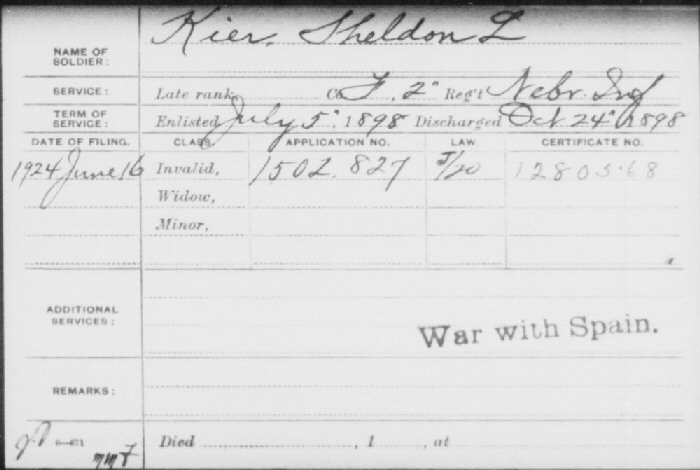 NAME OF SOLDIER: Kier, Sheldon L
SERVICE: Late rank, Co. F, 2" Reg't Nebr. Inf
TERM OF SERVICE: Enlisted July 5", 1898 Discharged Oct. 24" 1898
DATE OF FILING. CLASS. APPLICATION NO. LAW. CERTIFICATE NO.
1924 June 16 Invalid, 1502.827 J/20 12805.68
Widow,
Minor,
ADDITIONAL SERVICES:
War with Spain.
REMARKS:
Died , 1 , at